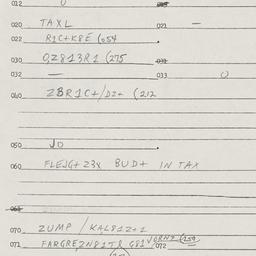 012 0
020 TAXL 021 —
022 R1C+K8E (054
030 0,2813R1 (275 031
032 — 033 0
040 Z8R1C+/DZ+ (212
050 JO
060 FLEJG+Z3X BUD+ IN TAX
070 ZUMP / KAL81Z+1
071 072